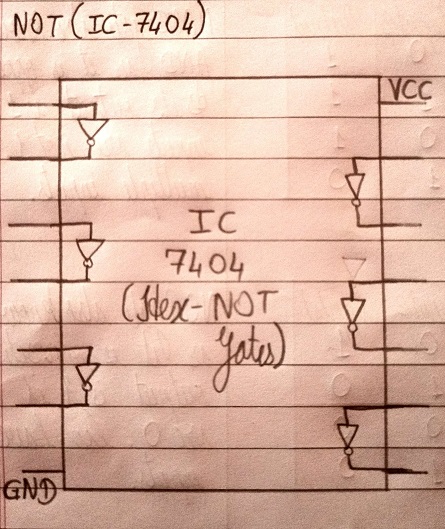 NOT (IC-7404)
VCC
IC
7404
(Hex-NOT
Gates)
GND